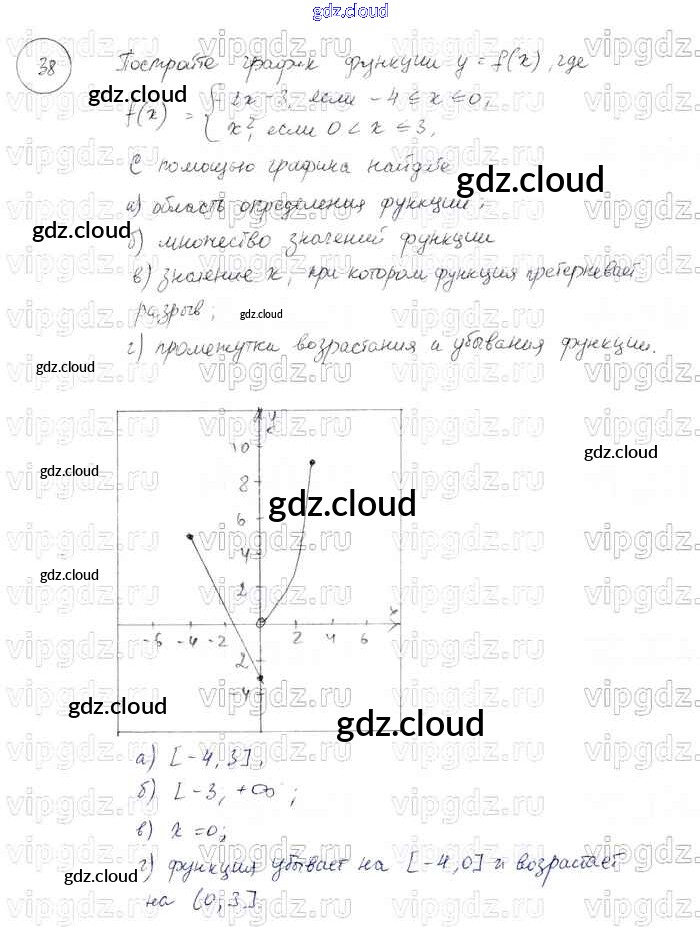 gdz.cloud
38 Постройте график функции y = f(x), где
f(x) = { -2x-3, если -4 ≤ x ≤ 0,
x², если 0 < x ≤ 3,
С помощью графика найдите
а) область определения функции;
б) множество значений функции
в) значение x, при котором функция претерневает
разрыв;
г) промежутки возрастания и убывания функции.
y
10
8
6
4
2
-6 -4 -2 2 4 6 x
2
-4
а) [-4, 3];
б) [-3, +∞;
в) x = 0;
г) функция убывает на [-4, 0] и возрастает
на (0, 3].
gdz.cloud
gdz.cloud
gdz.cloud
gdz.cloud
gdz.cloud
gdz.cloud
gdz.cloud
gdz.cloud
gdz.cloud
gdz.cloud
gdz.cloud
gdz.cloud
vipgdz.ru